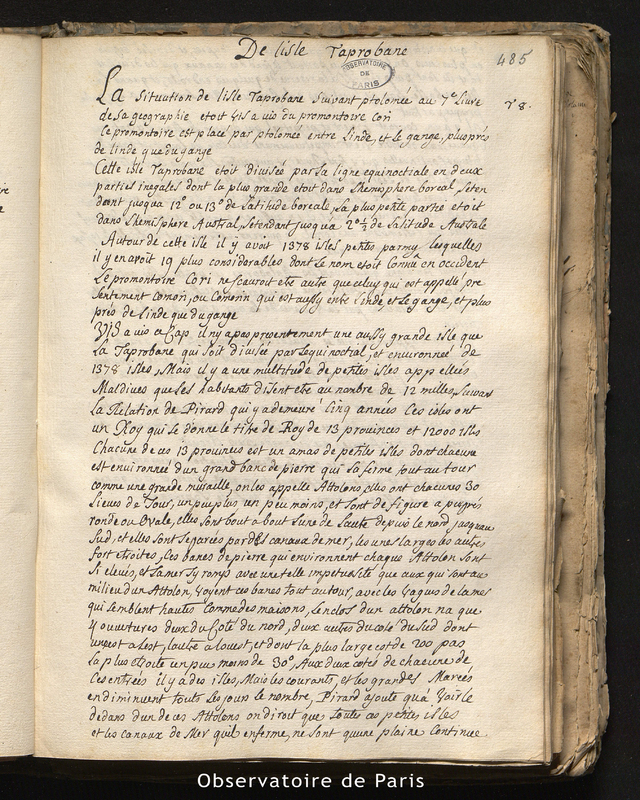 De lisle Taprobane
485
OBSERVATOIRE
DE
PARIS
La situation de lisle Taprobane suivant ptolomée au 7e Livre
de sa geographie etoit vis a vis du promontoire Cori
Ce promontoire est placé par ptolomée entre Linde, et le gange, plus prés
de linde que du gange
Cette isle Taprobane etoit divisée par la ligne equinoctiale en deux
parties inegales dont la plus grande etoit dans Lhemisphere boreal, seten
dant jusqua 12° ou 13° de Latitude boreale, La plus petite partie etoit
dans Lhemisphere Austral, setendant jusqua 2° ½ de Latitude Australe
Autour de cette isle il y avoit 1378 isles petites parmy lesquelles
il y en avoit 19 plus considerables dont le nom etoit Connu en occident
Le promontoire Cori ne scauroit etre autre que celuy qui est appellé pre
sentement Comori, ou Comorin qui est aussy entre Linde, et Le gange, et plus
prés de Linde que du gange
Vis a vis ce Cap il ny a pas presentement une aussy grande isle que
La Taprobane qui soit divisée par Lequinoctial, et environnée de
1378 isles, Mais il y a une multitude de petites isles appellées
Maldives que Les habitants disent etre au nombre de 12 milles, suivant
La Relation de Pirard qui y a demeuré Cinq années Ces isles ont
un Roy qui se donne le titre de Roy de 13 provinces et 12000 isles
Chacune de ces 13 provinces est un amas de petites isles dont chacune
est environnée d'un grand banc de pierre qui La ferme tout au tour
comme une grande muraille, on les appelle Attolons, elles ont chacunes 30
Lieues de Tour, un peu plus un peu moins, et sont de figure a peu prés
ronde ou Ovale, elles sont bout a bout Lune de Lautre depuis le nord jusquau
Sud, et elles sont separées par des canaux de mer, les unes larges les autres
fort etroites, Ces bancs de pierre qui environnent chaque Attolon sont
si elevés, et La mer sy romp avec une telle impetuosité que ceux qui sont au
milieu d'un Attolon, voyent ces bancs tout autour, avec les vagues de la mer
qui semblent hautes Comme des maisons, Lenclos dun attolon na que
4 ouvertures deux du Coté du nord, deux autres du coté du Sud dont
une est a Lest, Lautre a Louest, et dont la plus large est de 200 pas
La plus etroite un peu moins de 30°, Aux deux cotés de chacune de
Ces entrées il y a des isles, Mais les courants, et les grandes Marées
en diminuent touts Les jours le nombre, Pirard ajoute qua voir le
dedans d'un de ces Attolons on diroit que toutes ces petites isles
et les canaux de Mer quil enferme, ne sont qu'une plaine Continue
Observatoire de Paris